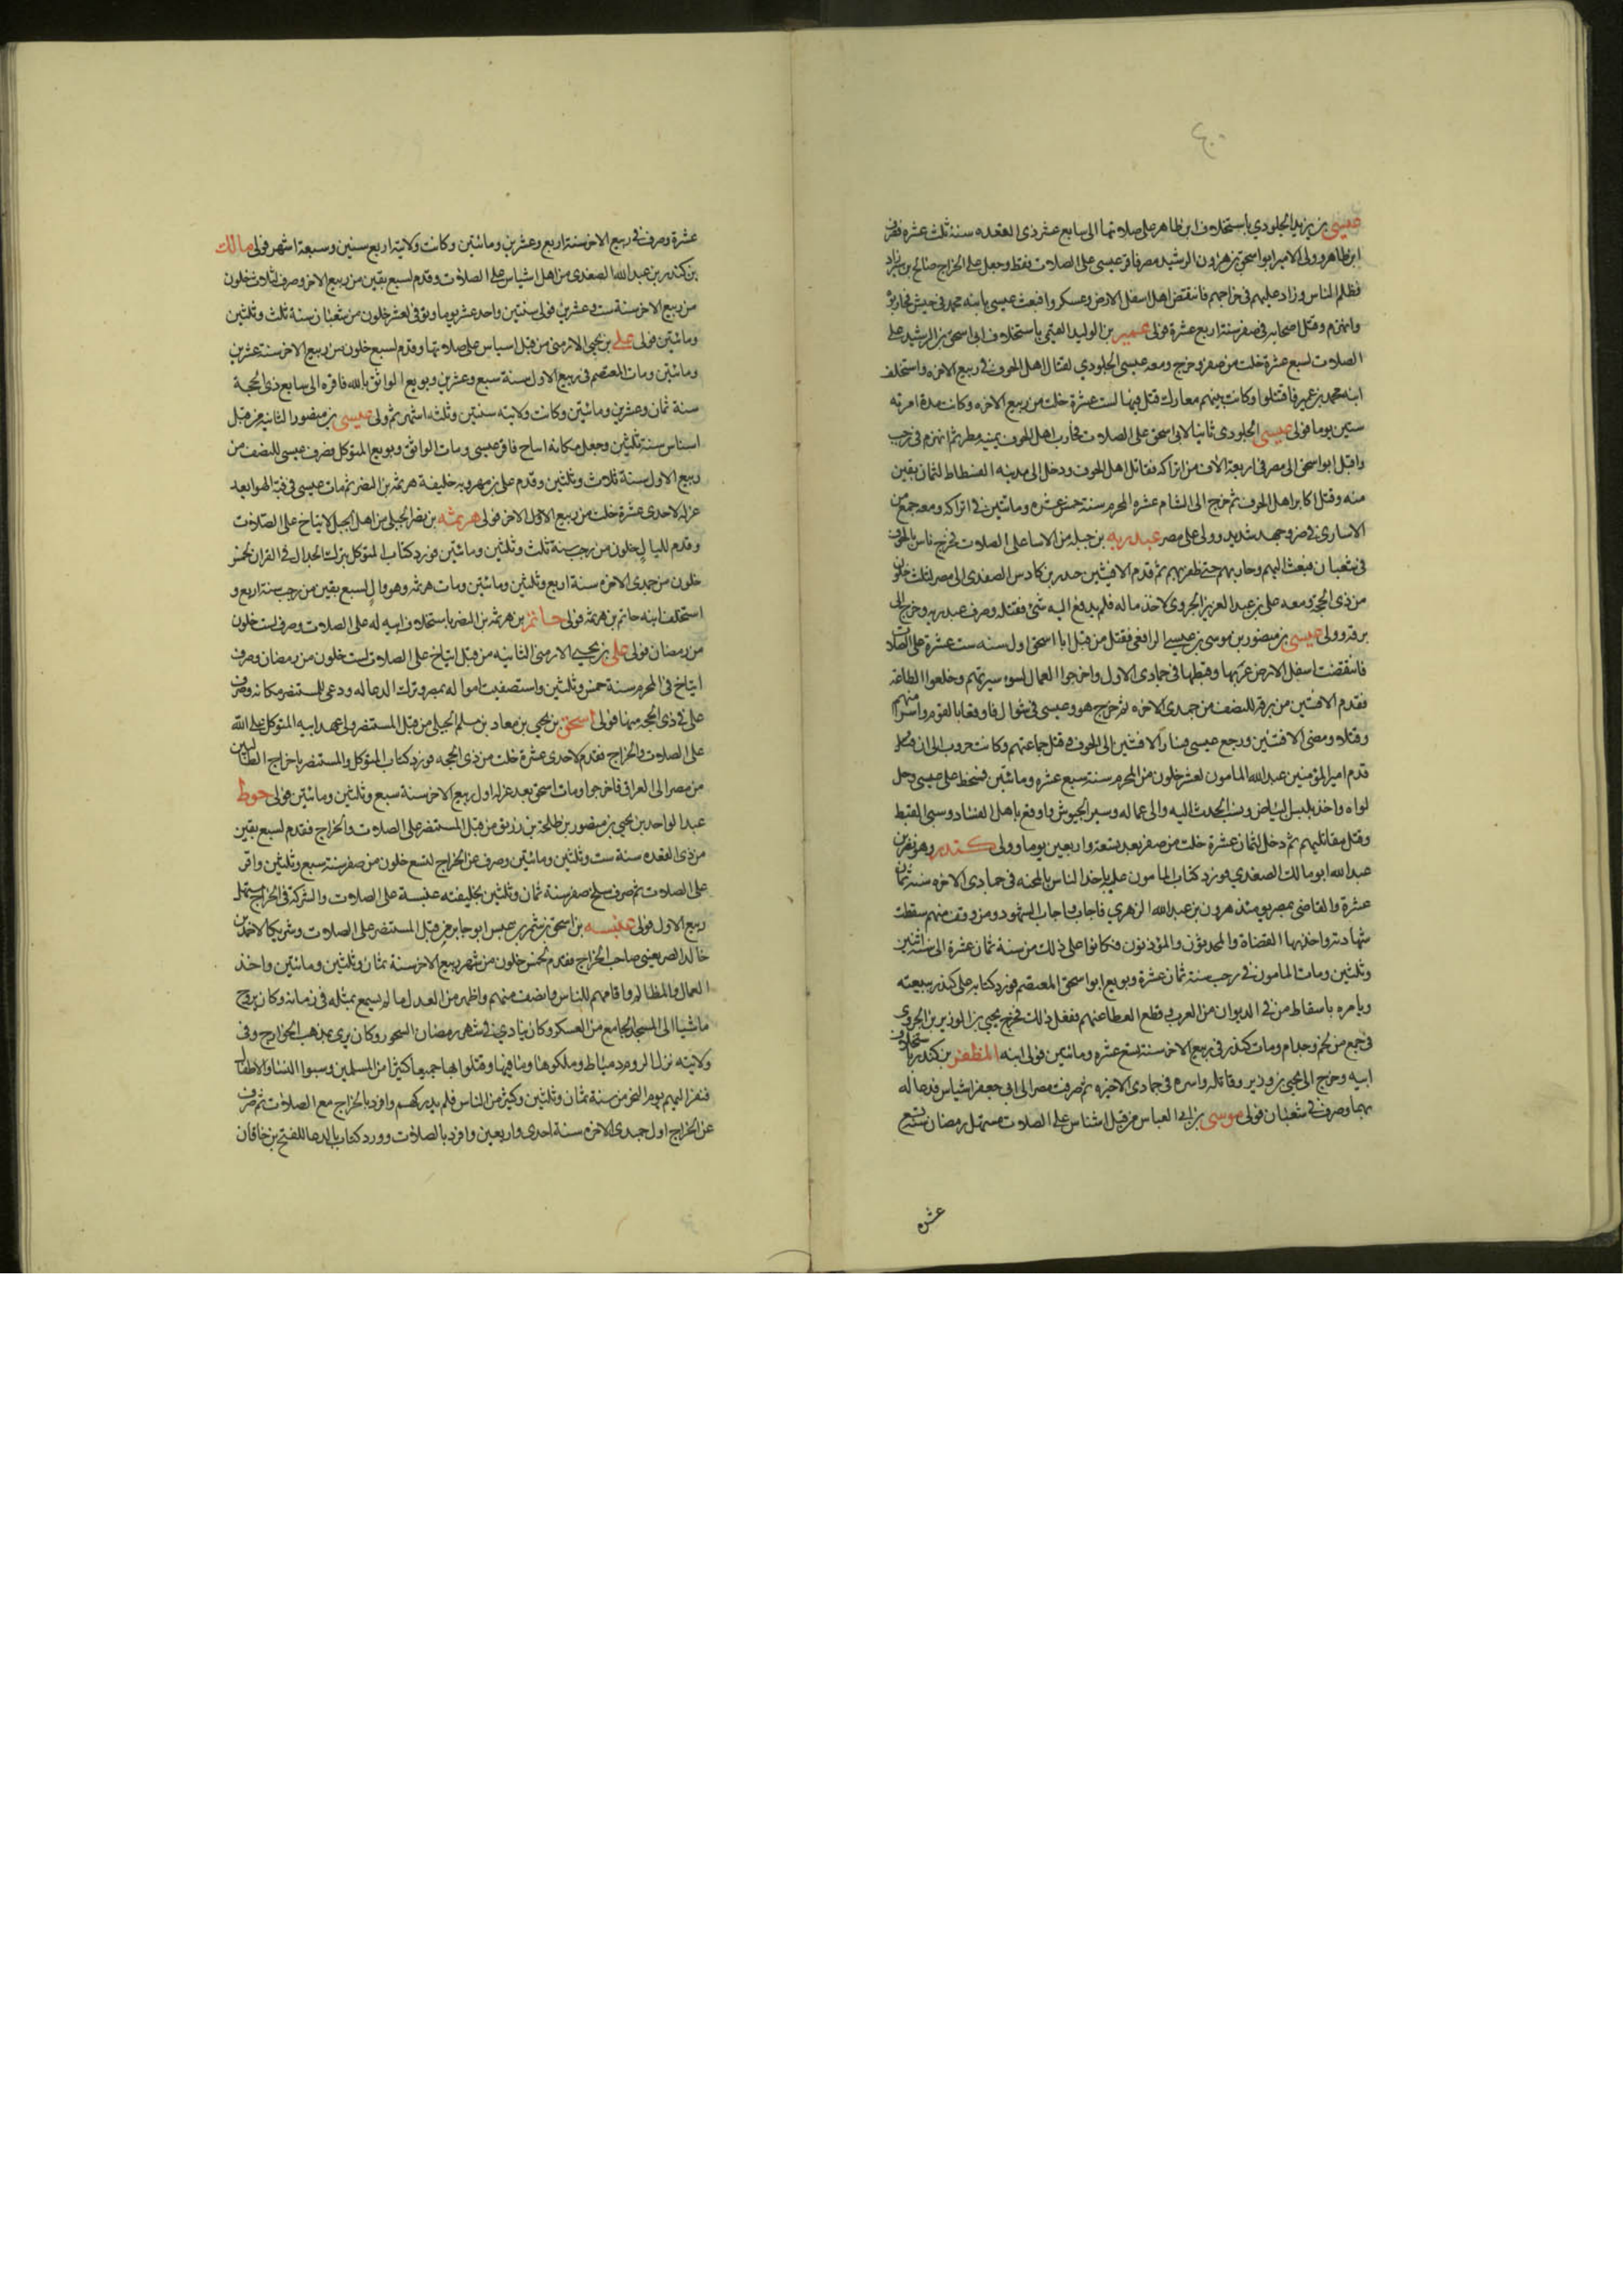 ٤٠
عيسى بن يزيد الجلودي باستخلاف ابن طاهر على صلاتها الى سابع عشر ذى القعده سنة ثلث عشره فصرف
ابن طاهر وولى الامير ابو اسحق بن هرون الرشيد مصر فاقر عيسى على الصلات فقط وجعل على الخراج صالح بن شيراد
فظلم الناس وزاد عليهم فى خراجهم فانتقض اهل اسفل الارض وعسكروا فبعث عيسى بابنه محمد فى جيش فحاربوه
وانهزم وقتل اصحابه فى صفر سنة اربع عشرة فولى عمير بن الوليد التميمى باستخلاف ابى اسحق بن الرشيد على
الصلات لسبع عشرة خلت من صفر وخرج ومعه عيسى الجلودي لقتال اهل الحوف فى ربيع الاخره واستخلف
ابنه محمد بن عمير فاقتتلوا وكانت بينهم معارك قتل فيها لست عشرة خلت من ربيع الاخره وكانت مدة امرته
ستين يوما فولى عيسى الجلودى ثانيا لابى اسحق على الصلات فحارب اهل الحوف بمنية مطر ثم انهزم فى رجب
واقبل ابو اسحق الى مصر فى اربعة الاف من اتراكه فقاتل اهل الحوف ودخل الى مدينه الفسطاط لثمان بقين
منه وقتل اكابر اهل الحوف ثم خرج الى الشام غره المحرم سنة خمس عشره ومائتين فى اتراكه ومعه جمع من
الاسارى فى ضر وجهد شديد وولى على مصر عبدربه بن جبله من الابنا على الصلات فخرج ناس بالحوف
فى شعبان فبعث اليهم وحاربهم حتى ظفر بهم ثم قدم الافشين حيدر بن كاوس الصفدى الى مصر لثلث خلون
من ذى الحجة ومعه على بن عبد العزيز الجروى لاخذ ماله فلم يدفع اليه شئ فقتله وصرف عبدربه وخرج الى
برقة وولى عيسى بن منصور بن موسى بن عيسى الرافعى فقتل من قبل ابا اسحق اول سنه ست عشرة على الصلات
فانتقضت اسفل الارض عربها وقبطها فى جمادى الاول واخرجوا العمال لسوء سيرتهم وخلعوا الطاعة
فقدم الافشين من برقة للنصف من جمدى الاخره ثم خرج هو وعيسى فى شوال فاوقعا بالقوم واسرا منهم
وقتلا ومضى الافشين ورجع عيسى فسار الافشين الى الحوف وقتل جماعتهم وكانت حروب الى ان
قدم امير المؤمنين عبد الله المامون لعشر خلون من المحرم سنة سبع عشره ومائتين فسخط على عيسى وحل
لواه واخذ بلبس البياض ونسب الحدث اليه والى عماله وسير الجيوش واوقع باهل الفساد وسبى القبط
وقتل مقاتليهم ثم دخل لثمان عشرة خلت من صفر بعد تسعة واربعين يوما وولى كندر وهو نصر بن
عبد الله ابو مالك الصفدي فورد كتاب المامون عليه باخذ الناس بالمحنه فى جمادى الاخره سنة ثمان
عشرة والقاضى بمصر يومئذ هرون بن عبد الله الزهري فاجاب واجاب الشهود ومن وقف منهم سقطت
شهادته واخذ بها القضاة والمحدثون والمؤذنون فكانوا على ذلك من سنة ثمان عشرة الى سنة اثنين
وثلثين ومات المامون فى رجب سنة ثمان عشرة وبويع ابو اسحق المعتصم فورد كتابه على كندر ببيعته
ويامره باسقاط من فى الديوان من العرب وقطع العطا عنهم ففعل ذلك فخرج يحيى بن الوزير بن الجروى
فى جمع من لخم وجذام ومات كندر فى ربيع الاخر سنة تسع عشره ومائتين فولى ابنه المظفر بن كندر باستخلاف
ابيه وخرج الى يحيى بن وزير وقاتله واسره فى جمادى الاخره ثم صرفت مصر الى ابى جعفر اشناس فدعا له
بها وصرف فى شعبان فولى موسى بن ابى العباس من قبل اشناس على الصلات مستهل رمضان سنة تسع
عشره
عشرة وصرف فى ربيع الاخر سنة اربع وعشرين ومائتين وكانت ولايته اربع سنين وسبعة اشهر فولى مالك
بن كندر بن عبد الله الصفدى من اهل اشناس على الصلات وقدم لسبع بقين من ربيع الاخر وصرف لثلاث خلون
من ربيع الاخر سنة ست وعشرين فولى سنتين واحد عشر يوما وتوفى لعشر خلون من شعبان سنة ثلث وثلثين
ومائتين فولى على بن يحيى الارمنى من قبل اشناس على صلاتها وقدم لسبع خلون من ربيع الاخر سنة عشرين
ومائتين ومات المعتصم فى ربيع الاول سنة سبع وعشرين وبويع الواثق بالله فاقره الى سابع ذى الحجة
سنة ثمان وعشرين ومائتين وكانت ولايته سنتين وثلثه اشهر ثم ولى عيسى بن منصور الثانيه من قبل
اشناس سنة ثلثين وجعل مكانه ايتاح فاقر عيسى ومات الواثق وبويع المتوكل فصرف عيسى للنصف من
ربيع الاول سنة ثلاث وثلثين وقدم على بن مهرويه خليفة هرثمه بن النضر ثم مات عيسى فى قبة الهوا بعد
عزله لاحدى عشرة خلت من ربيع الاول الاخر فولى هرثمه بن نضر الجبلى من اهل الجبل لايتاخ على الصلات
وقدم لليال خلون من رجب سنة ثلث وثلثين ومائتين فورد كتاب المتوكل بترك الجدال فى القران لخمس
خلون من جمدى الاخره سنة اربع وثلثين ومائتين ومات هرثمه وهو وال لسبع بقين من رجب سنة اربع و
استخلف ابنه حاتم بن هرثمه فولى حاتم بن هرثمه بن النضر باستخلاف ابيه له على الصلات وصرف لست خلون
من رمضان فولى على بن يحيى الارمنى الثانيه من قبل ايتاخ على الصلات لست خلون من رمضان وصرف
ايتاخ فى المحرم سنة خمس وثلثين واستصفيت امواله بمصر وترك الدعا له ودعى للمستنصر مكانه وصرف
على فى ذى الحجه منها فولى اسحق بن يحيى بن معاد بن مسلم الجبلى من قبل المستنصر ولى عهد ابيه المتوكل على الله
على الصلات والخراج فقدم لاحدى عشرة خلت من ذى الحجه فورد كتاب المتوكل والمستنصر باخراج الطالبيين
من مصر الى العراق فاخرجوا ومات اسحق بعد عزله اول ربيع الاخر سنة سبع وثلثين ومائتين فولى حوط
عبد الواحد بن يحيى بن منصور بن طلحة بن زريق من قبل المستنصر على الصلات والخراج فقدم لسبع بقين
من ذى القعده سنة ست وثلثين ومائتين وصرف عن الخراج لتسع خلون من صفر سنة سبع وثلثين واقر
على الصلات ثم صرف سلخ صفر سنة ثمان وثلثين بخليفته عنبسة على الصلات والشركة فى الخراج مستهل
ربيع الاول فولى عنبسه بن اسحق بن شمر بن عبس ابو جابر من قبل المستنصر على الصلات وشريكا لاحمد بن
خالد الصريفينى صاحب الخراج فقدم لخمس خلون من شهر ربيع الاخر سنة ثمان وثلثين ومائتين واخذ
العمال بالمظالم واقامهم للناس وانصف منهم واظهر من العدل ما لم يسمع بمثله فى زمانه وكان يروح
ماشيا الى المسجد الجامع من العسكر وكان ينادي فى شهر رمضان السحور وكان يرى بمذهب الخوارج وفى
ولايته نزل الروم دمياط وملكوها وما فيها وقتلوا بها جميعا كثيرا من المسلمين وسبوا النسا والاطفال
فنفر اليهم يوم النحر من سنة ثمان وثلثين وكثير من الناس فلم يدركهم وافرد بالخراج مع الصلات ثم صرف
عن الخراج اول جمدى الاخره سنة احدى واربعين وافرد بالصلات وورد كتاب بالدعا للفتح بن خاقان